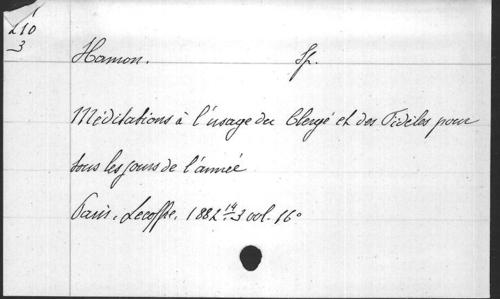 210
3
Hamon. Sp.
Méditations à l'usage du Clergé et des Fidèles pour
tous les jours de l'année
Paris, Lecoffre, 1882 14 3 vol. 16°